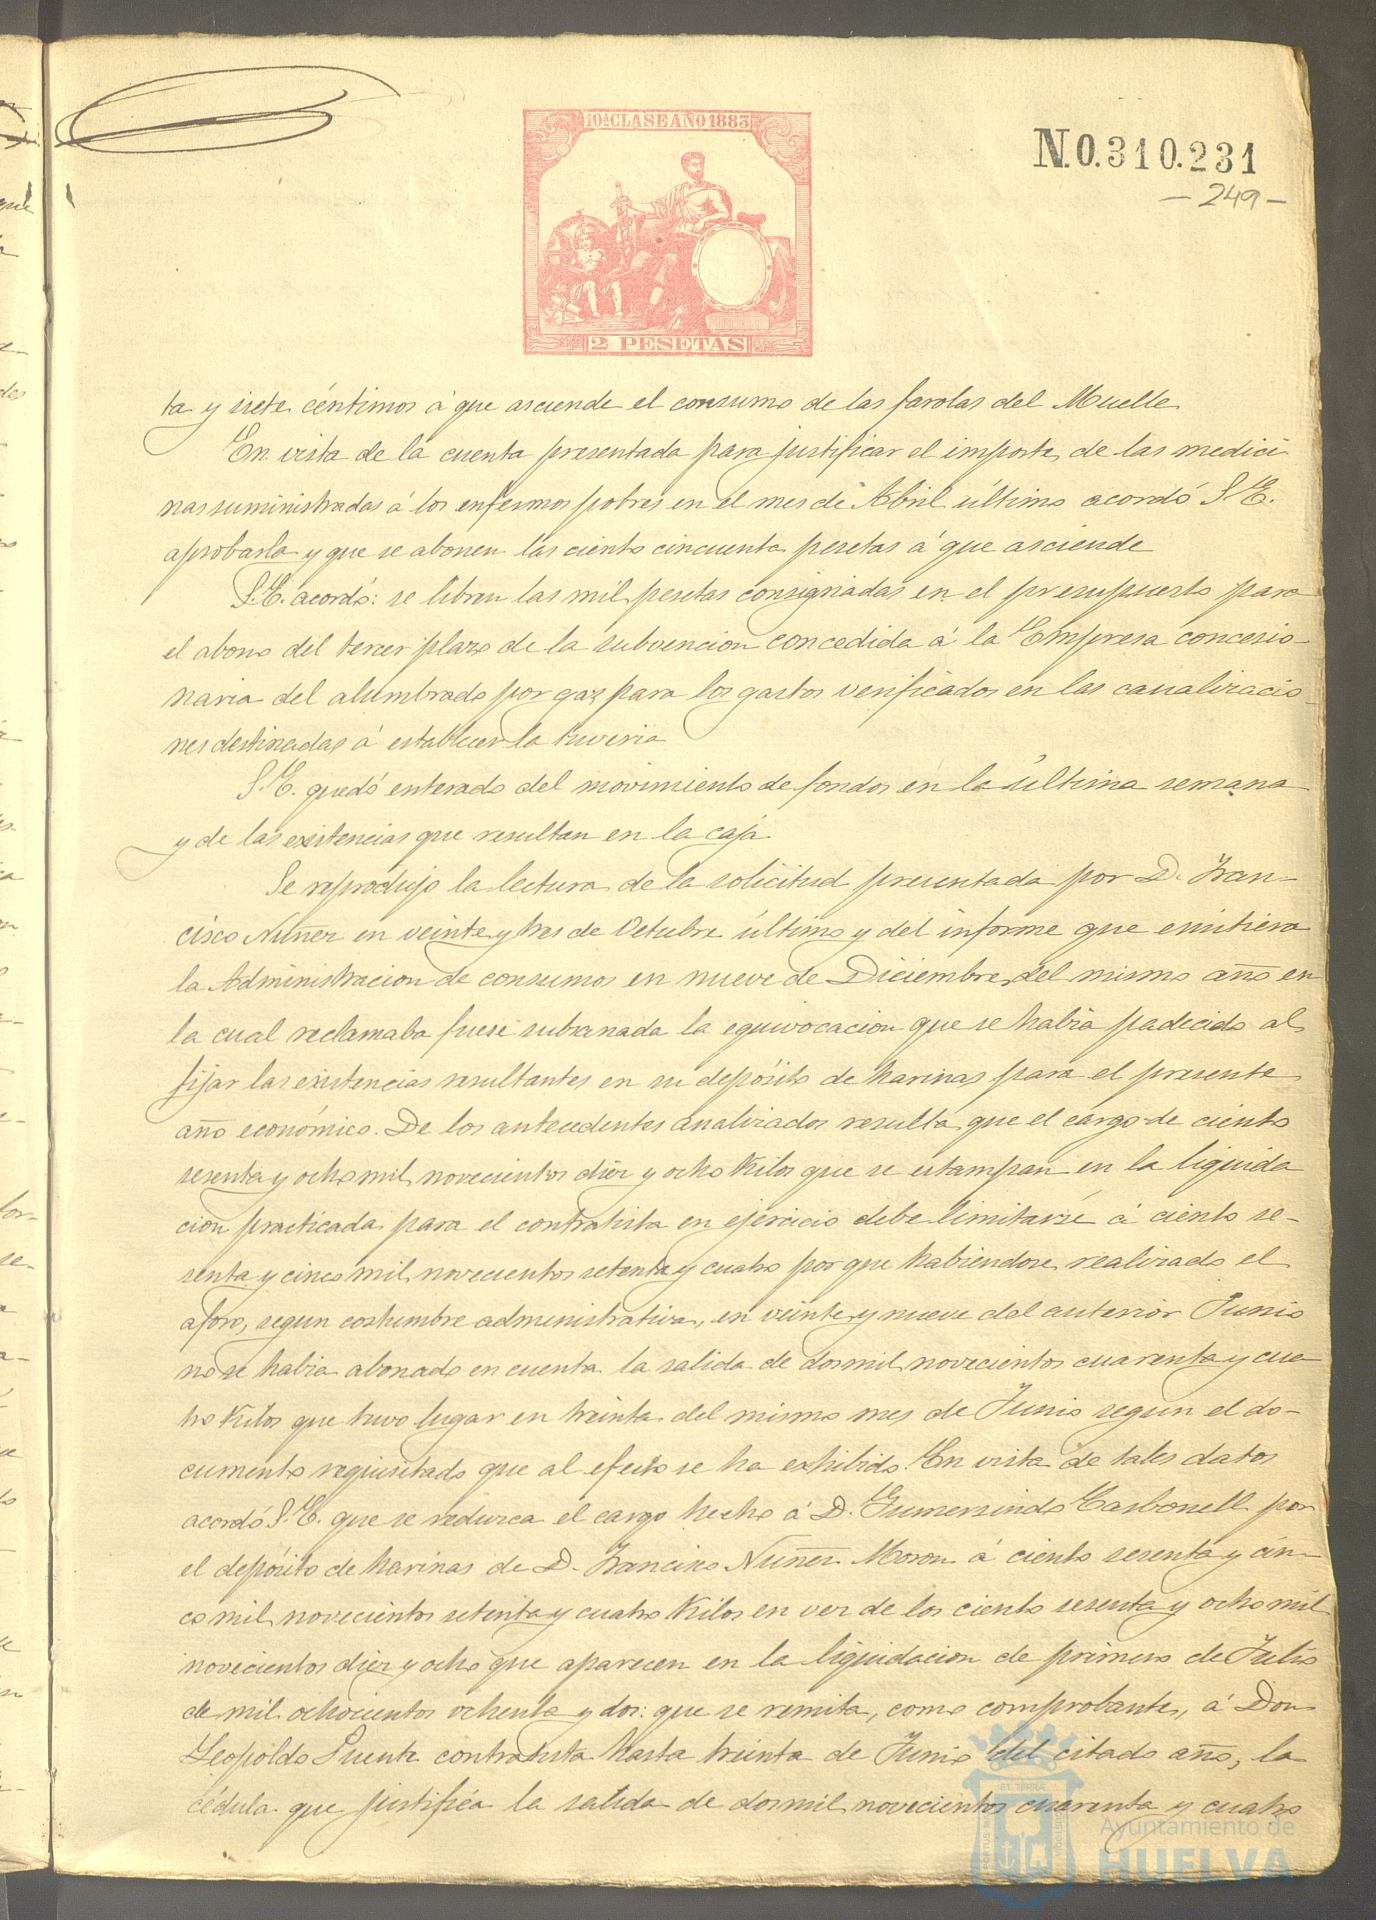 10ª CLASE AÑO 1883
2 PESETAS
N.0.310.231
- 249 -
ta y siete céntimos á que asciende el consumo de las farolas del Muelle
En vista de la cuenta presentada para justificar el importe de las medici
nas suministradas á los enfermos pobres en el mes de Abril último acordó S.E.
aprobarla y que se abonen las ciento cincuenta pesetas á que asciende
S.E. acordó: se libren las mil pesetas consignadas en el presupuesto para
el abono del tercer plazo de la subvencion concedida á la Empresa concesio-
naria del alumbrado por gaz para los gastos verificados en las canalizacio-
nes destinadas á establecer la tuveria
S.E. quedó enterado del movimiento de fondos en la última semana
y de las existencias que resultan en la caja
Se reprodujo la lectura de la solicitud presentada por D. Fran-
cisco Nuñez en veinte y tres de Octubre último y del informe que emitiera
la Administracion de consumos en nueve de Diciembre del mismo año en
la cual reclamaba fuese subsanada la equivocacion que se habia padecido al
fijar las existencias resultantes en su depósito de harinas para el presente
año económico. De los antecedentes analizados resulta que el cargo de ciento
sesenta y ocho mil novecientos diez y ocho Kilos que se estampan en la liquida
cion practicada para el contratista en ejercicio debe limitarse á ciento se-
senta y cinco mil novecientos setenta y cuatro por que habiendose realizado el
aforo, segun costumbre administrativa, en veinte y nueve del anterior Junio
no se habia abonado en cuenta la salida de dos mil novecientos cuarenta y cua
tro Kilos que tuvo lugar en treinta del mismo mes de Junio segun el do-
cumento requisitado que al efecto se ha exhibido. En vista de tales datos
acordó S.E. que se reduzca el cargo hecho á D. Gumersindo Carbonell por
el depósito de harinas de D. Francisco Nuñez Moron á ciento sesenta y cin-
co mil novecientos setenta y cuatro Kilos en vez de los ciento sesenta y ocho mil
novecientos diez y ocho que aparecen en la liquidacion de primero de Julio
de mil ochocientos ochenta y dos: que se remita, como comprobante, á Don
Leopoldo Puente contratista hasta treinta de Junio del citado año, la
cédula que justifica la salida de dos mil novecientos cuarenta y cuatro
Ayuntamiento de
HUELVA